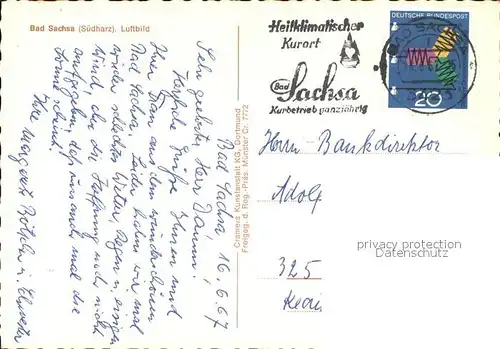 Bad Sachsa (Südharz). Luftbild
Heilklimatischer
Kurort
Bad Sachsa
Kurbetrieb ganzjährig
DEUTSCHE BUNDESPOST
20
Bad Sachsa, 16.6.67
Sehr geehrter Herr
herzliche Grüße Ihnen und
Ihrer aus dem wunderschönen
Bad Sachsa. Leider haben wir mal
wieder schlechtes Wetter, Regen u. eisigen
Wind, aber die Hoffnung noch nicht
aufgegeben, daß mal die
Sonne scheint.
Ihre Margaret u. Schwester
Cramers Kunstanstalt KG, Dortmund
Freigeg. d. Reg.-Präs. Münster Nr. 7772
Herrn Bankdirektor
Adolf
privacy protection
Datenschutz
325